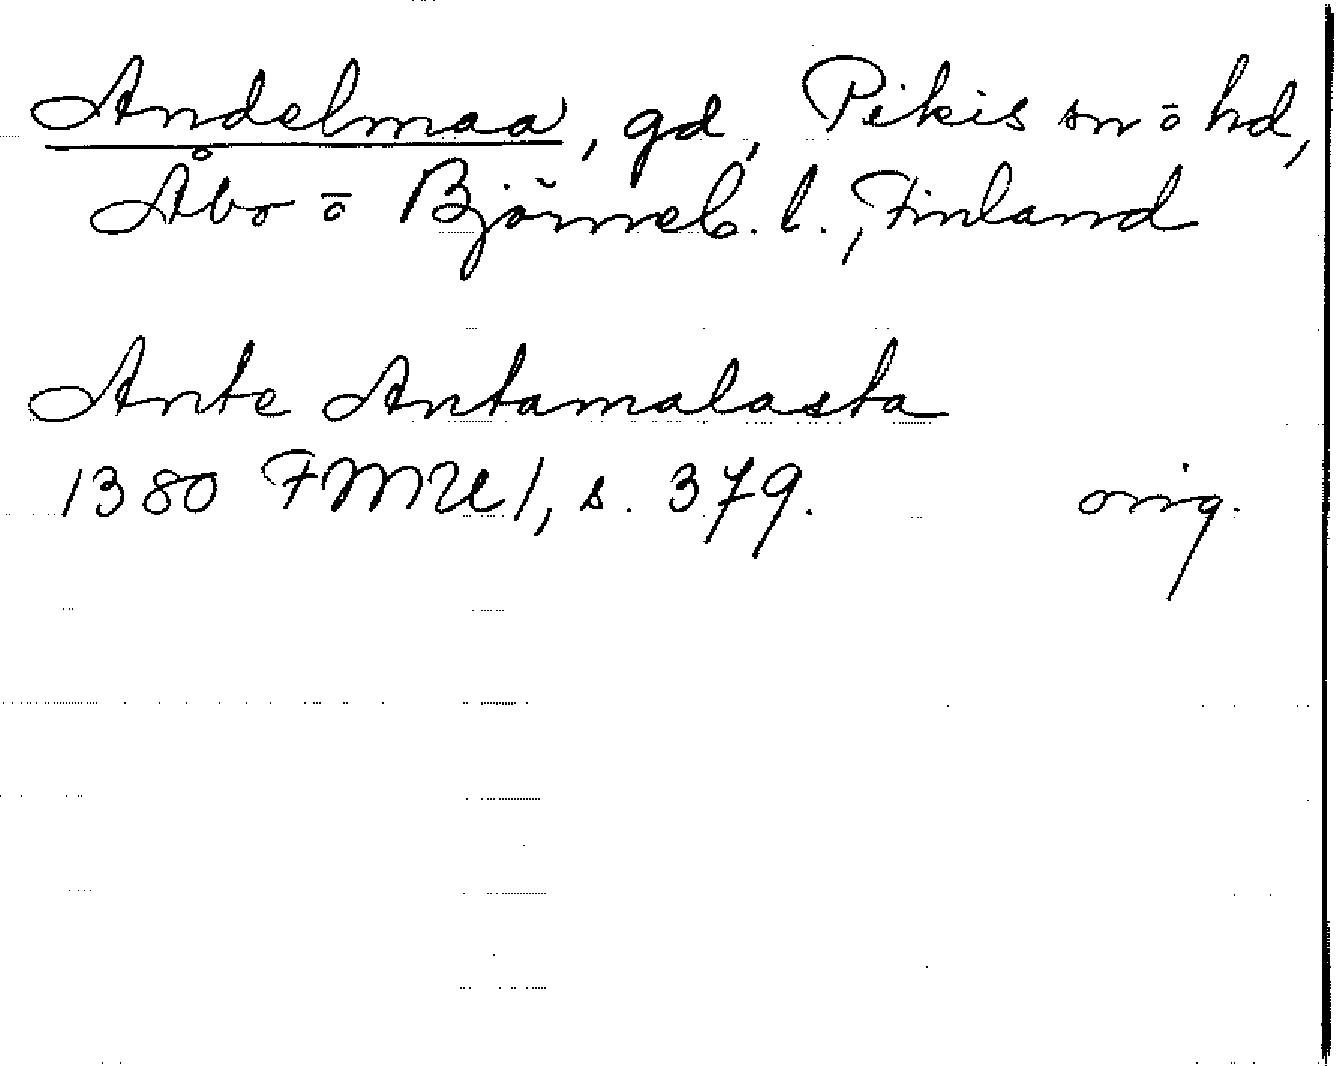 Andelmaa, gd, Pikis sn ō hd,
Åbo ō Björneb. l., Finland
Ante Antamalasta
1380 FMU 1, s. 379. orig.